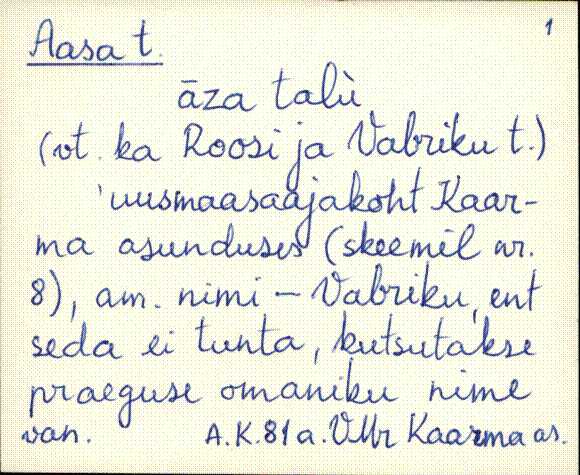 1
Aasa t.
āza talù
(vt. ka Roosi ja Vabriku t.)
'uusmaasaajakoht Kaar-
ma asunduses (skeemil nr.
8), am. nimi – Vabriku, ent
seda ei tunta, kutsutakse
praeguse omaniku nime
van. A.K.81 a. VMr Kaarma as.